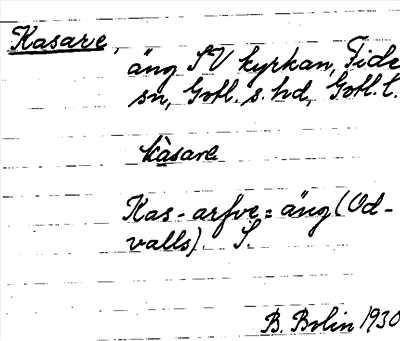 Kasarve,
äng SV kyrkan, Fide
sn, Gotl. s. hd, Gotl. l.
kàsarve
Kas-arfve = äng (Od-
valls). S.
B. Bolin 1930